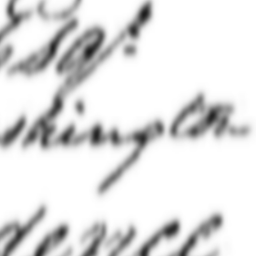 Esq!
shington
dence